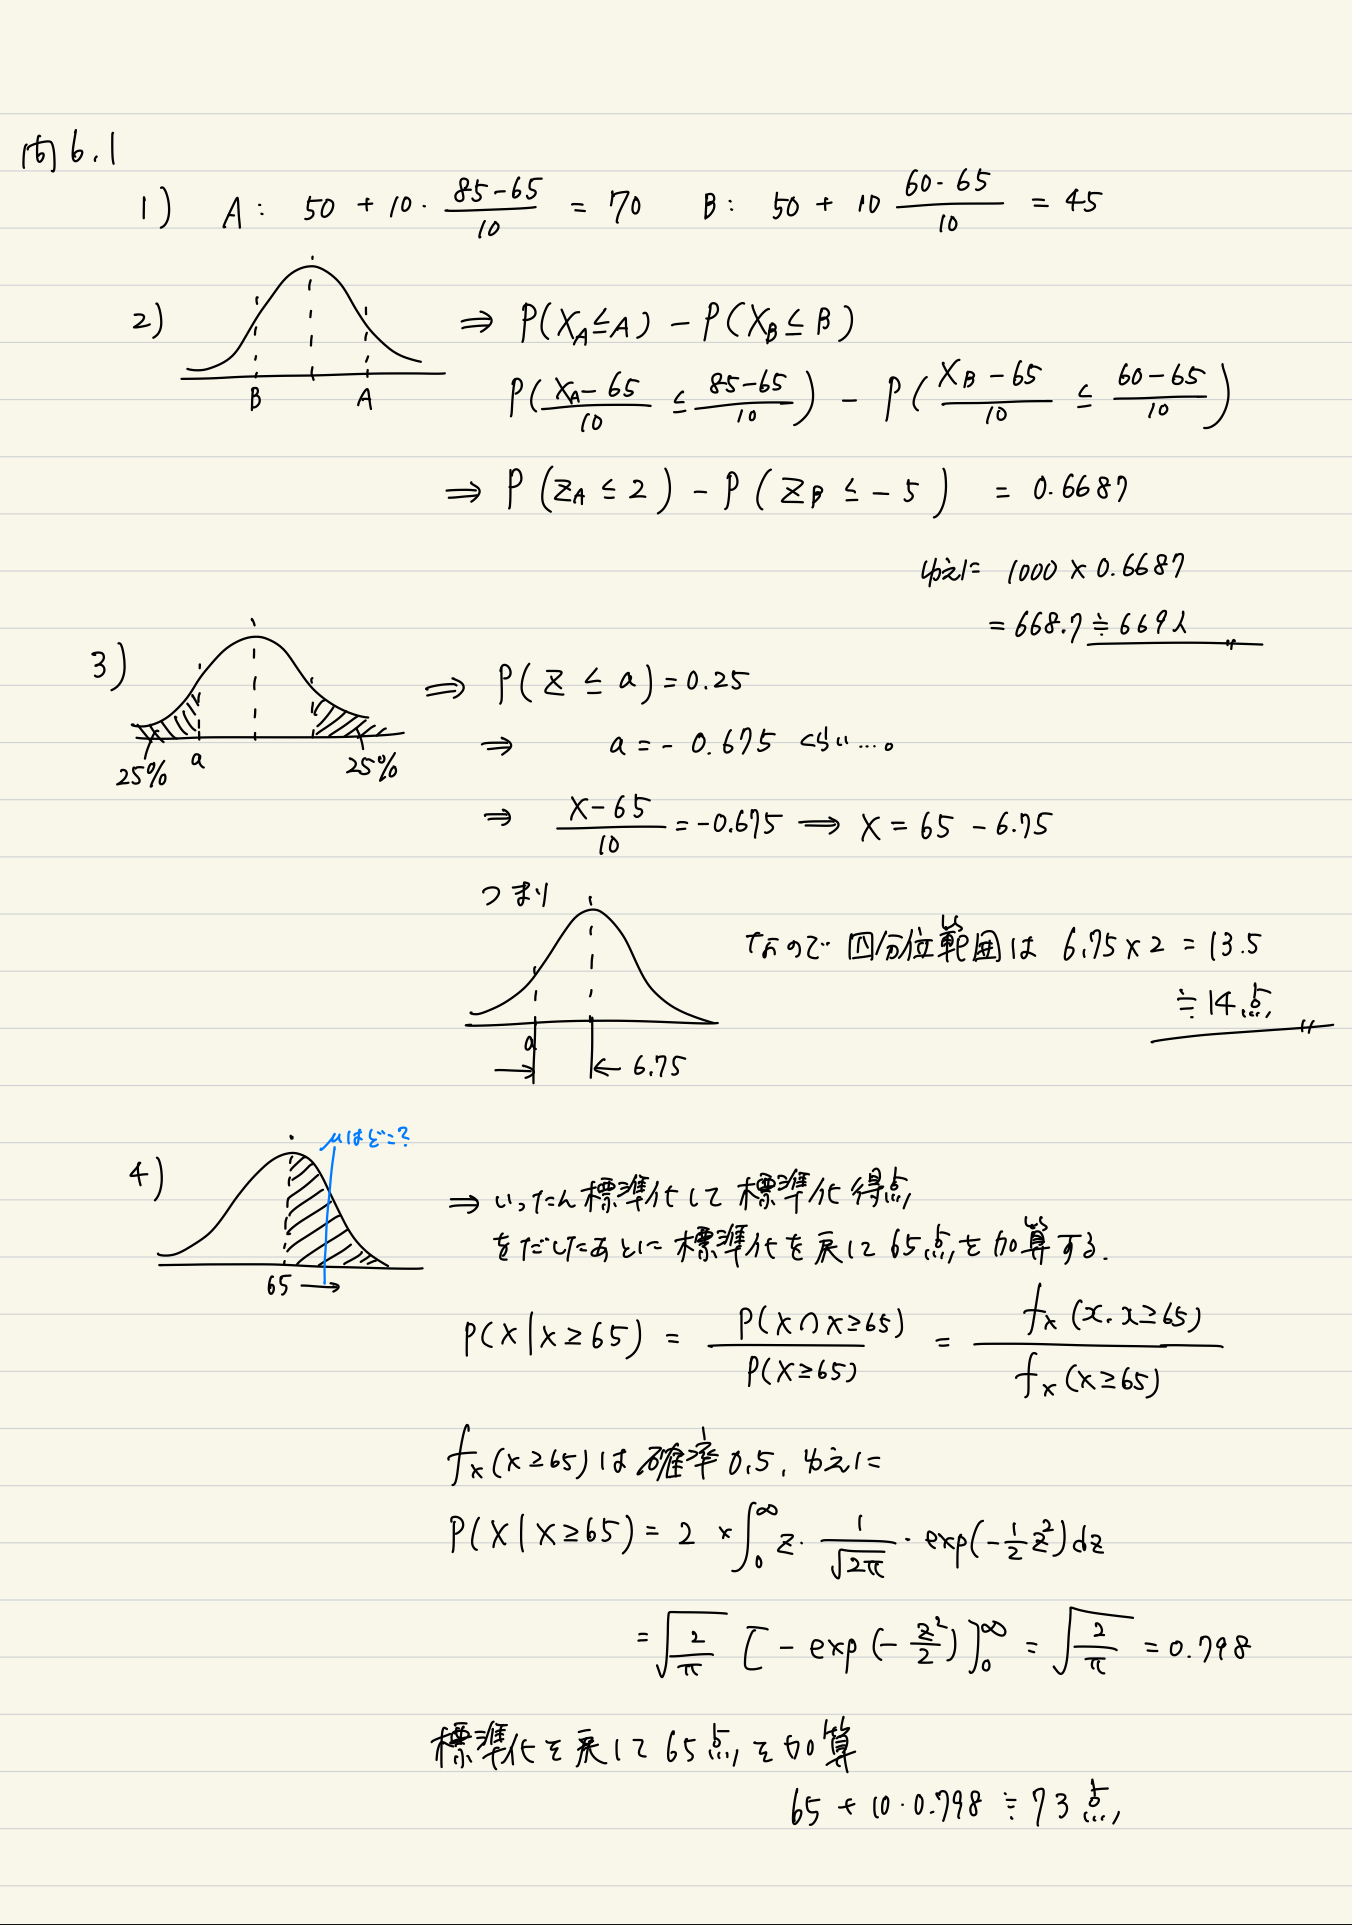 問 6.1
1) A: 50 + 10・(85-65)/10 = 70 B: 50 + 10 (60-65)/10 = 45
2) ⇒ P(X_A ≤ A) - P(X_B ≤ B)
B A
P((X_A - 65)/10 ≤ (85-65)/10) - P((X_B - 65)/10 ≤ (60-65)/10)
⇒ P(Z_A ≤ 2) - P(Z_B ≤ -5) = 0.6687
ゆえに 1000 × 0.6687
= 668.7 ≒ 669人 〃
3) ⇒ P(Z ≤ a) = 0.25
⇒ a = -0.675 くらい…。
25% a 25%
⇒ (X-65)/10 = -0.675 ⇒ X = 65 - 6.75
つまり
なので 四分位範囲は 6.75×2 = 13.5
≒ 14点 〃
a
→ ← 6.75
μはどこ?
4) ⇒ いったん標準化して標準化得点
をだしたあとに標準化を戻して65点を加算する.
65 →
P(X|X≥65) = P(X∩X≥65)/P(X≥65) = f_x(x. x≥65)/f_x(x≥65)
f_x(x≥65)は確率0.5. ゆえに
P(X|X≥65) = 2 × ∫_0^∞ z・1/√2π・exp(-1/2 z²)dz
= √(2/π) [-exp(-z²/2)]_0^∞ = √(2/π) = 0.798
標準化を戻して65点を加算
65 + 10・0.798 ≒ 73点